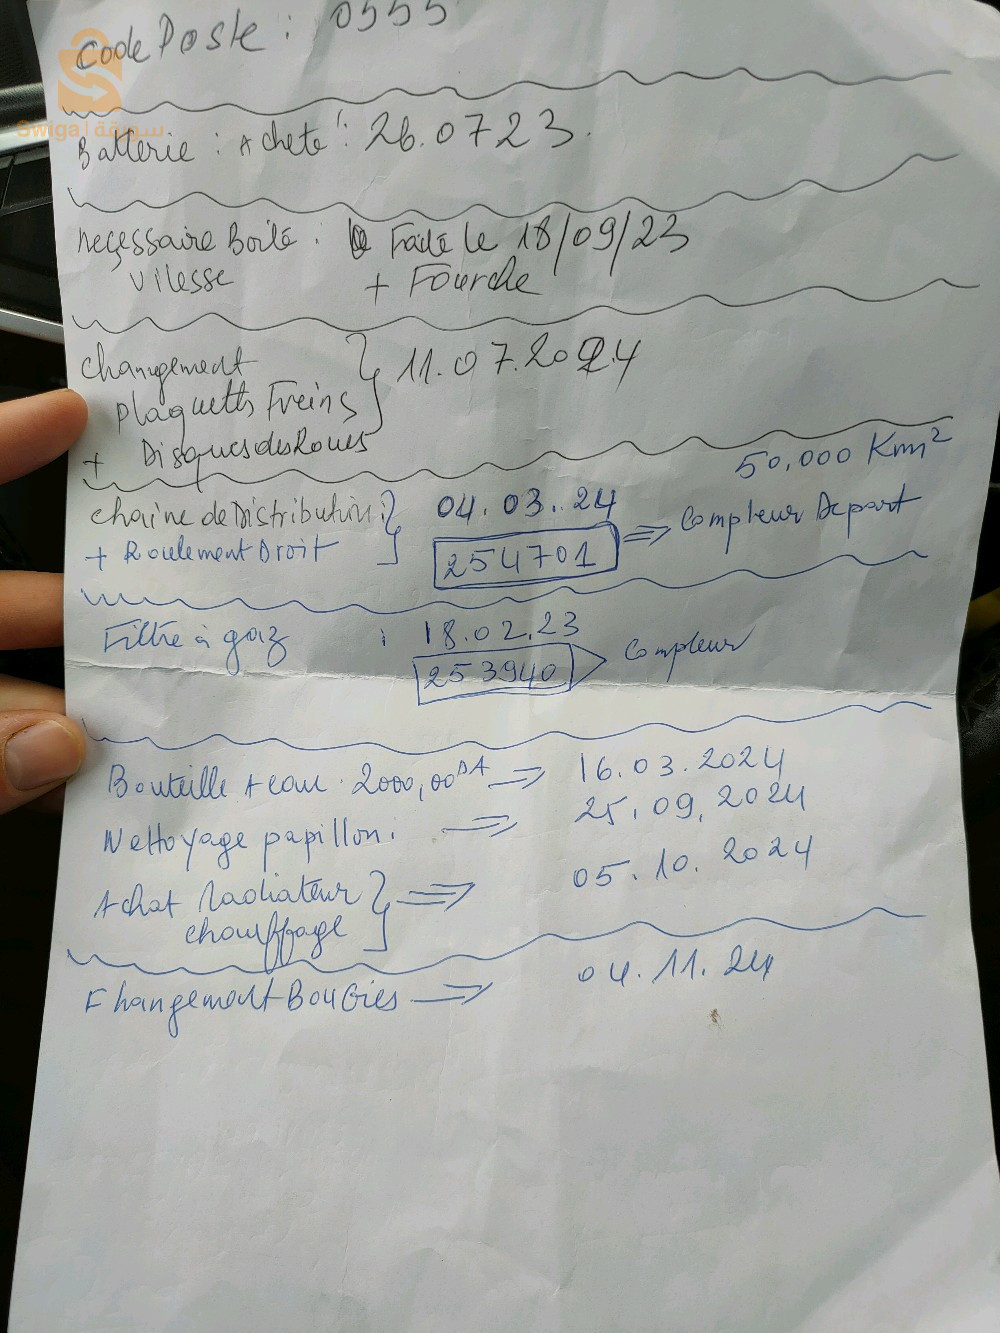 Code Poste : 0555
Swiga | سويقة
Batterie : Acheté : 26.0723.
neçessaire Boite : Faite le 18/09/23
vilesse + Fourche
changement
plaquetts Freins } 11.07.2024
+ Disques des Roues
50.000 Km²
chaine de Distribution : 04.03.24
+ Roulement Droit } 254701 ⇒ Compteur Depart
Filtre à gaz : 18.02.23
253940 Compteur
Bouteille A eau . 2000,00 DA ⇒ 16.03.2024
Nettoyage papillon . ⇒ 25.09.2024
Achat Radiateur
chauffage } ⇒ 05.10.2024
Changement BouGies ⇒ 04.11.24